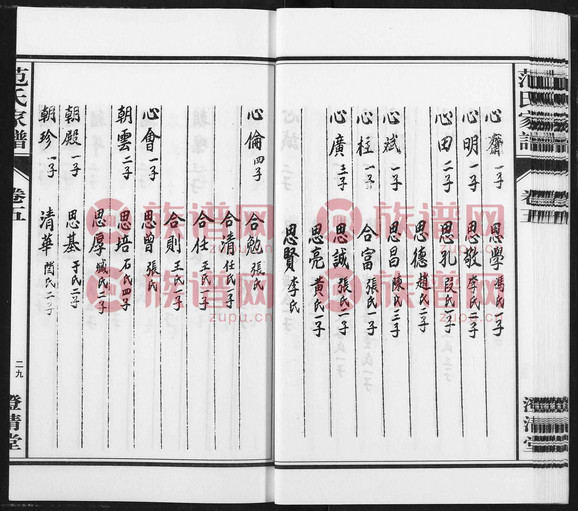 范氏家譜
卷五
澄清堂
心齋 一子 思學 馮氏一子
心明 一子 思敬 李氏二子
心田 二子 思孔 段氏一子
思德 趙氏二子
心斌 一子 思昌 陳氏三子
心柱 一子 合富 張氏一子
心廣 三子 思誠 張氏二子
思亮 黃氏一子
思賢 李氏
心倫 四子 合勉 張氏
合清 任氏一子
合任 王氏一子
合則 王氏一子
心會 一子 思曾 張氏
朝雲 二子 思培 石氏四子
思厚 臧氏二子
朝殿 一子 思基 于氏二子
朝珍 一子 清華 閆氏二子
范氏家譜
卷五
二九
澄清堂
族谱网
zupu.cn
族谱网
zupu.cn
族谱网
zupu.cn
族谱网
zupu.cn